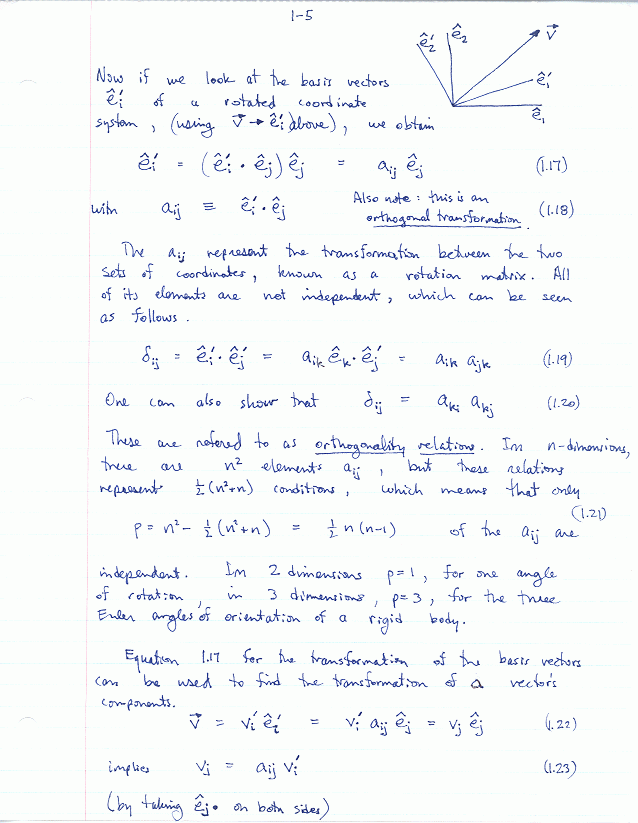 1-5
ê₂′ ê₂ V⃗
ê₁′
ê₁
Now if we look at the basis vectors
êᵢ′ of a rotated coordinate
system, (using V⃗ → êᵢ′ above), we obtain
êᵢ′ = (êᵢ′ · êⱼ) êⱼ = aᵢⱼ êⱼ (1.17)
with aᵢⱼ ≡ êᵢ′ · êⱼ Also note: this is an
orthogonal transformation. (1.18)
The aᵢⱼ represent the transformation between the two
sets of coordinates, known as a rotation matrix. All
of its elements are not independent, which can be seen
as follows.
δᵢⱼ = êᵢ′ · êⱼ′ = aᵢₖ êₖ · êⱼ′ = aᵢₖ aⱼₖ (1.19)
One can also show that δᵢⱼ = aₖᵢ aₖⱼ (1.20)
These are refered to as orthogonality relations. In n-dimensions,
there are n² elements aᵢⱼ, but these relations
represent ½(n²+n) conditions, which means that only
(1.21)
p = n² - ½(n²+n) = ½ n(n-1) of the aᵢⱼ are
independent. In 2 dimensions p=1, for one angle
of rotation, in 3 dimensions, p=3, for the three
Euler angles of orientation of a rigid body.
Equation 1.17 for the transformation of the basis vectors
can be used to find the transformation of a vector's
components.
V⃗ = vᵢ′ êᵢ′ = vᵢ′ aᵢⱼ êⱼ = vⱼ êⱼ (1.22)
implies vⱼ = aᵢⱼ vᵢ′ (1.23)
(by taking êⱼ· on both sides)